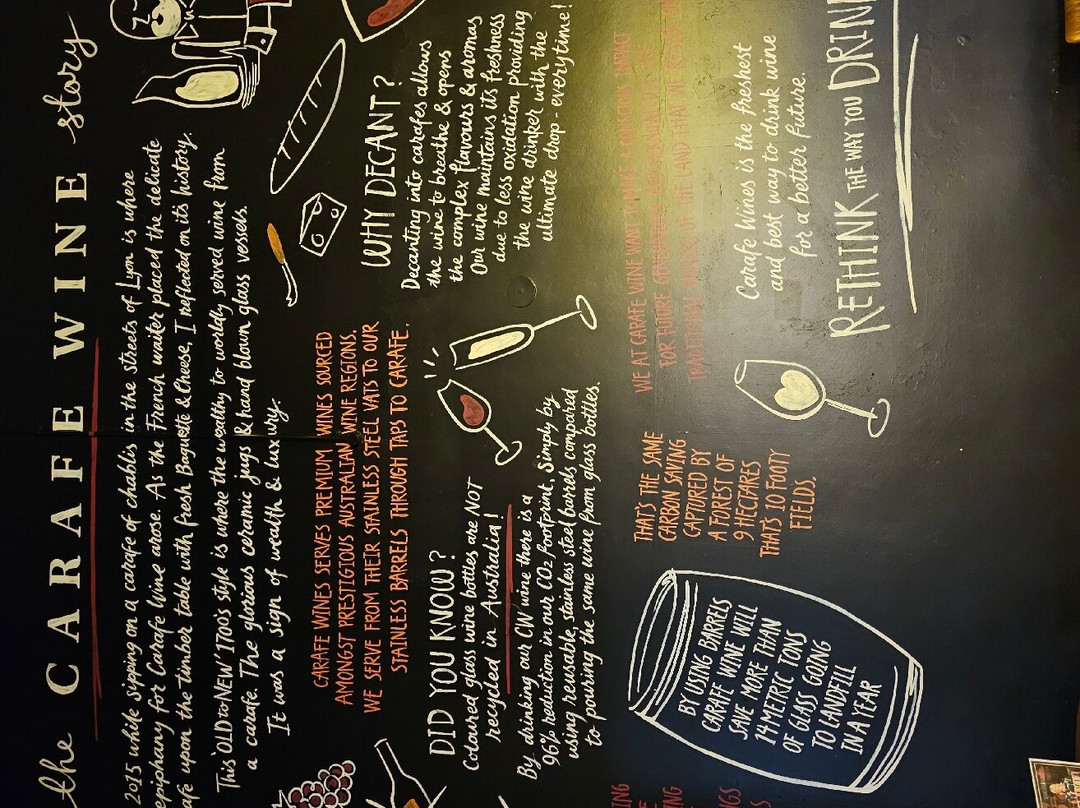 the CARAFE WINE story
2015 while sipping on a carafe of chablis in the streets of Lyon is where
epiphany for Carafe Wine arose. As the French waiter placed the delicate
upon the timber table with fresh Baguette & Cheese, I reflected on its history.
This 'OLD is NEW' 1700's style is where the wealthy to worldly served wine from
a carafe. The glorious ceramic jugs & hand blown glass vessels.
It was a sign of wealth & luxury.
CARAFE WINES SERVES PREMIUM WINES SOURCED
AMONGST PRESTIGIOUS AUSTRALIAN WINE REGIONS.
WE SERVE FROM THEIR STAINLESS STEEL VATS TO OUR
STAINLESS BARRELS THROUGH TAPS TO CARAFE.
WHY DECANT?
Decanting into carafes allows
the wine to breathe & opens
the complex flavours & aromas
Our wine maintains its freshness
due to less oxidation providing
the wine drinker with the
ultimate drop - everytime!
DID YOU KNOW?
Coloured glass wine bottles are NOT
recycled in Australia!
By drinking our CW wine there is a
96% reduction in our CO2 footprint, Simply by
using reusable, stainless steel barrels compared
to pouring the same wine from glass bottles.
BY USING BARRELS
CARAFE WINE WILL
SAVE MORE THAN
14 METRIC TONS
OF GLASS GOING
TO LANDFILL
IN A YEAR
THAT'S THE SAME
CARBON SAVING
CAPTURED BY
A FOREST OF
9 HECTARES
THATS 10 FOOTY
FIELDS.
WE AT CARAFE WINE WANT TO MAKE A CONSCIOUS IMPACT
FOR FUTURE
TRADITIONAL OWNERS OF THE LAND THAT WE
Carafe Wines is the freshest
and best way to drink wine
for a better future.
RETHINK THE WAY YOU DRINK